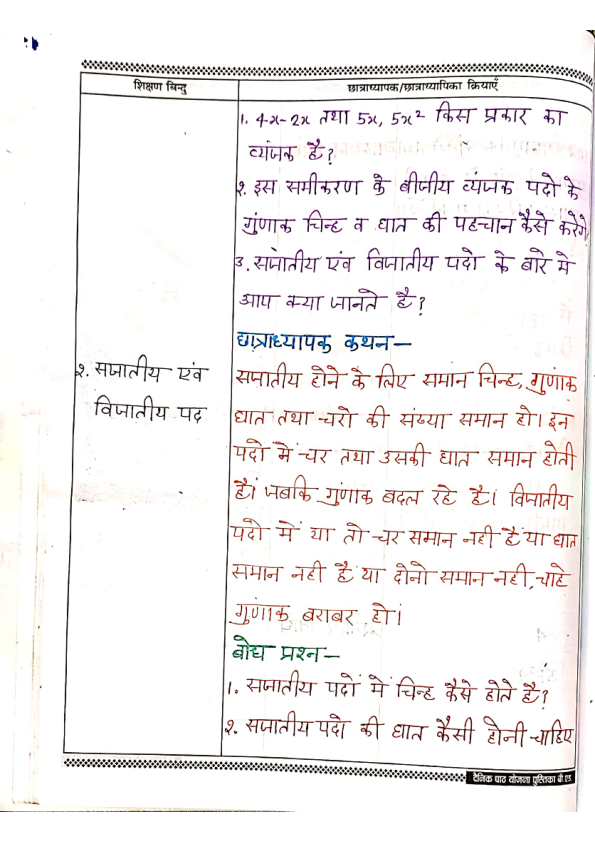 शिक्षण बिन्दु
छात्राध्यापक/छात्राध्यापिका क्रियाएँ
1. 4x-2x तथा 5x, 5x² किस प्रकार का
व्यंजक है?
२. इस समीकरण के बीजीय व्यंजक पदो के
गुंणाक चिन्ह व घात की पहचान कैसे करेगे,
३. सजातीय एंव विजातीय पदो के बारे मे
आप क्या जानते है?
छात्राध्यापक कथन–
२. सजातीय एंव
विजातीय पद
सजातीय होने के लिए समान चिन्ह, गुणांक
घात तथा चरो की संख्या समान हो। इन
पदो में चर तथा उसकी घात समान होती
है। जबकि गुंणाक बदल रहे है। विजातीय
पदो में या तो चर समान नही है या घात
समान नही है या दोनो समान नही, चाहे
गुणांक बराबर हो।
बोध प्रश्न–
1. सजातीय पदों में चिन्ह कैसे होते है?
२. सजातीय पदो की घात कैसी होनी चाहिए
दैनिक पाठ योजना पुस्तिका बी.एड.